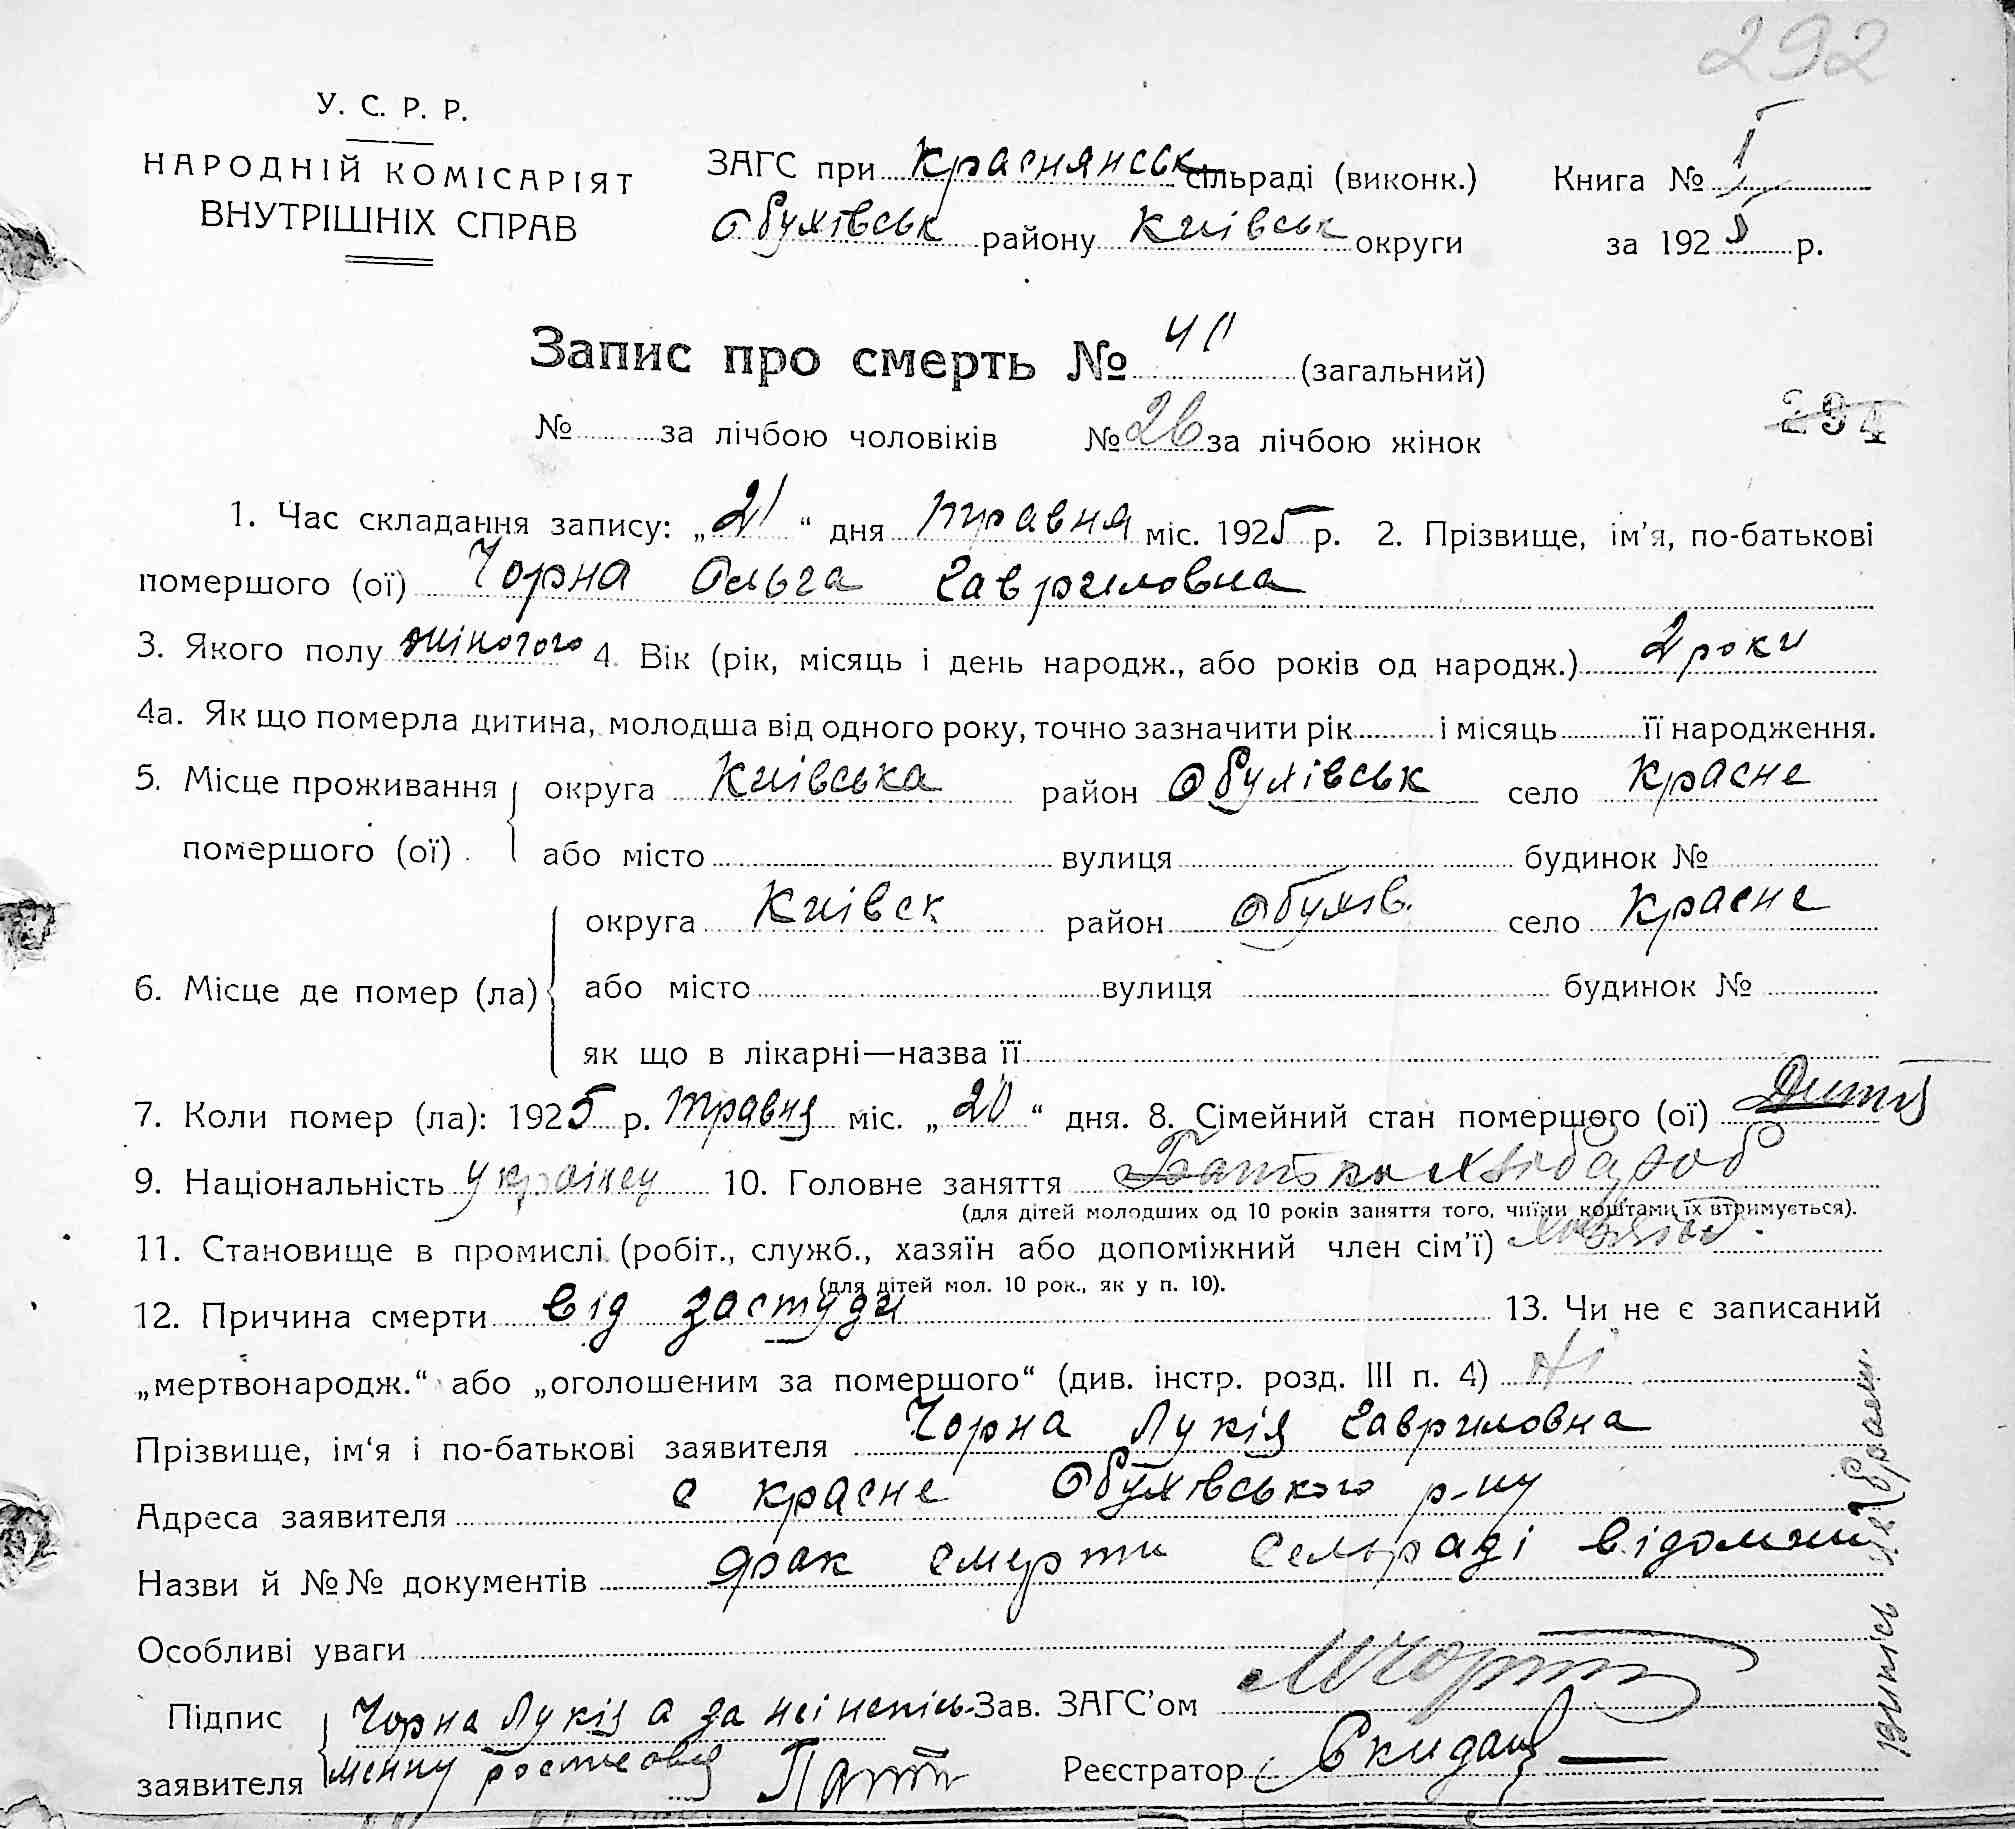 292
У. С. Р. Р.
НАРОДНІЙ КОМІСАРІЯТ
ВНУТРІШНІХ СПРАВ
ЗАГС при Краснянськ сільраді (виконк.) Книга № I
Обухівськ району Київськ округи за 1925 р.
Запис про смерть № 40 (загальний)
№ за лічбою чоловіків № 26 за лічбою жінок
294
1. Час складання запису: „21“ дня травня міс. 1925 р. 2. Прізвище, ім'я, по-батькові
помершого (ої) Чорна Ольга Гавриловна
3. Якого полу жіночого 4. Вік (рік, місяць і день народж., або років од народж.) 2 роки
4а. Як що померла дитина, молодша від одного року, точно зазначити рік і місяць її народження.
5. Місце проживання округа Київська район Обухівськ село Красне
помершого (ої) або місто вулиця будинок №
округа Київск район Обухів. село Красне
6. Місце де помер (ла) або місто вулиця будинок №
як що в лікарні—назва її
7. Коли помер (ла): 1925 р. травня міс. „20“ дня. 8. Сімейний стан помершого (ої) Дитя
9. Національність українец 10. Головне заняття Батько хлібороб
(для дітей молодших од 10 років заняття того, чиїми коштами їх втримується).
11. Становище в промислі (робіт., служб., хазяїн або допоміжний член сім'ї)
(для дітей мол. 10 рок., як у п. 10).
12. Причина смерти від застуди 13. Чи не є записаний
„мертвонародж.“ або „оголошеним за помершого“ (див. інстр. розд. III п. 4) Ні
Прізвище, ім'я і по-батькові заявителя Чорна Лукія Гавриловна
Адреса заявителя с Красне Обухівського р-ну
Назви й №№ документів фак смерти Сельраді відомий
Особливі уваги
Підпис Чорна Лукія а за неі непісь- Зав. ЗАГС'ом
заявителя менну Реєстратор